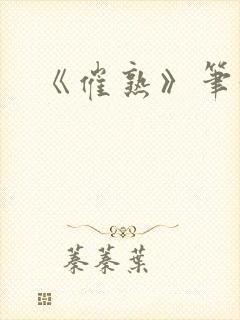 《催熟》筆
蓁蓁葉